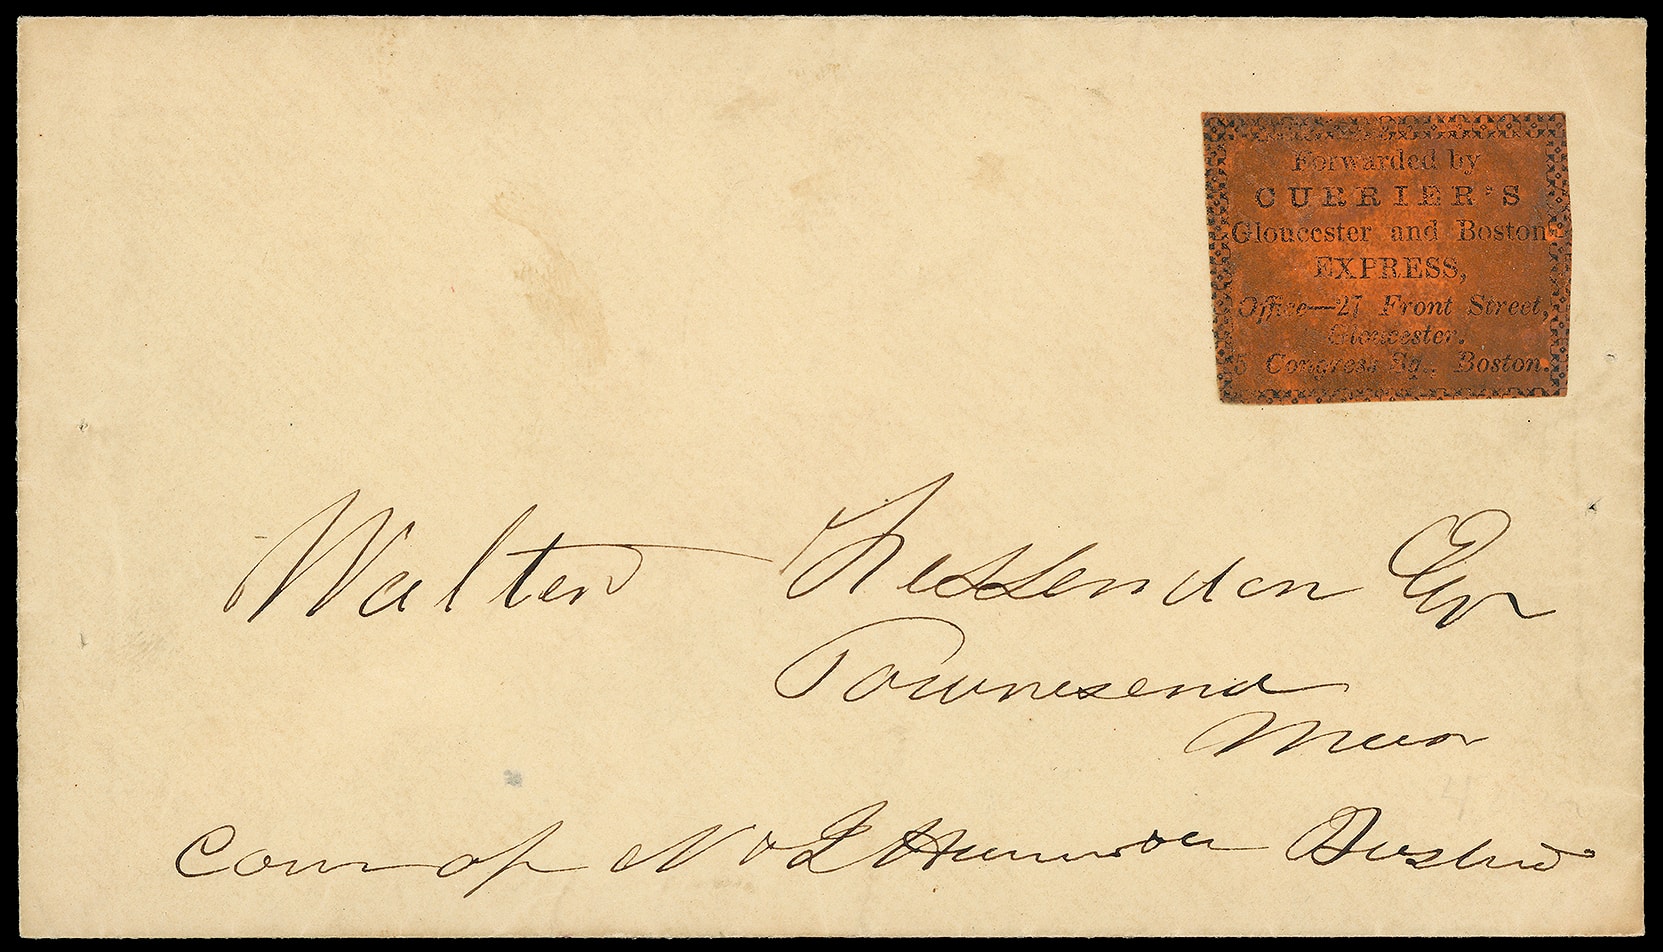 Forwarded by
CURRIER'S
Gloucester and Boston
EXPRESS,
Office—27 Front Street,
Gloucester.
5 Congress Sq., Boston.
Walter Fessenden Esqr
Townesend
Mass
Care of N & L Boston